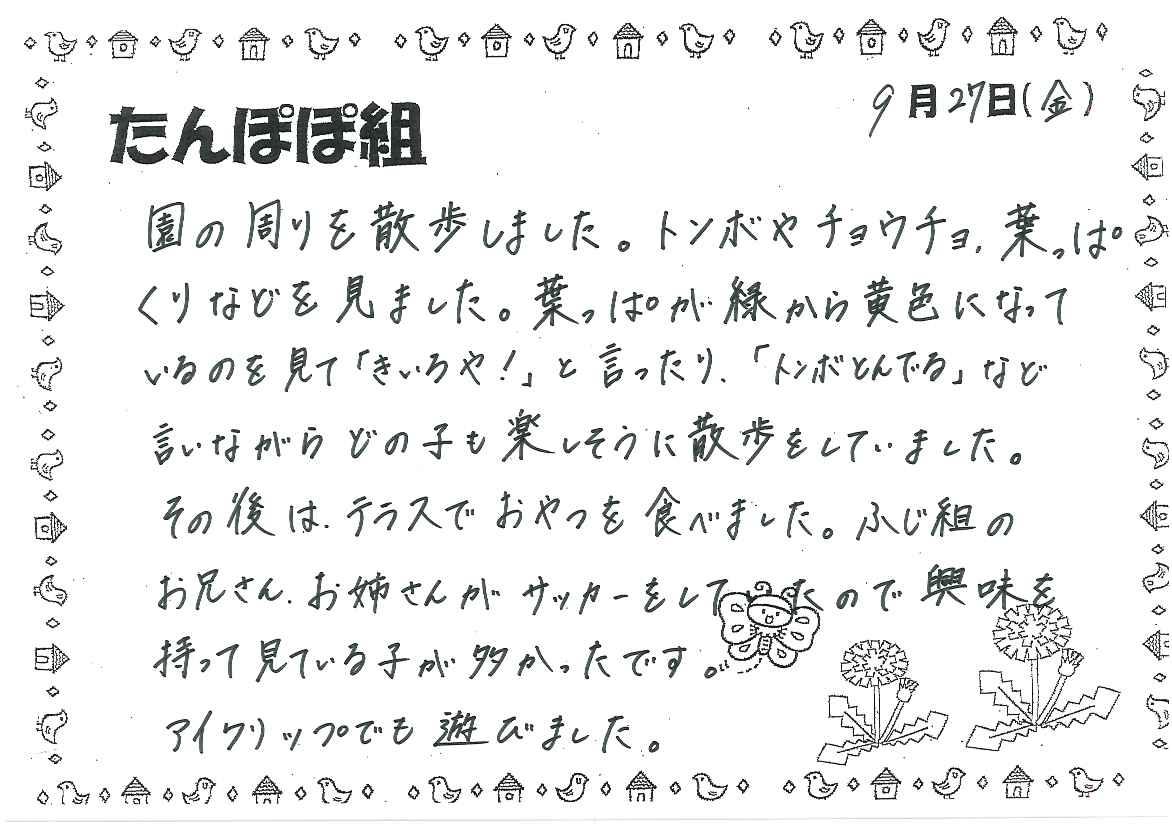 9月27日(金)
たんぽぽ組
園の周りを散歩しました。トンボやチョウチョ、葉っぱ
くりなどを見ました。葉っぱが緑から黄色になって
いるのを見て「きいろや!」と言ったり、「トンボとんでる」など
言いながらどの子も楽しそうに散歩をしていました。
その後は、テラスでおやつを食べました。ふじ組の
お兄さん、お姉さんがサッカーをしていたので興味を
持って見ている子が多かったです。
アイクリップでも遊びました。